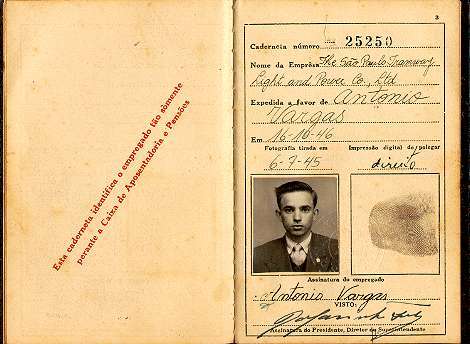 Esta caderneta identifica o empregado tão sòmente
perante a Caixa de Aposentadoria e Pensões
3
Caderneta número 25250
Nome da Emprêsa The São Paulo Tramway
Light and Power Co., Ltd
Expedida a favor de Antonio
Vargas
Em 16-10-46
Fotografia tirada em
6-7-45
Impressão digital do polegar
direito
Assinatura do empregado
Antonio Vargas
VISTO:
Assinatura do Presidente, Diretor ou Superintendente